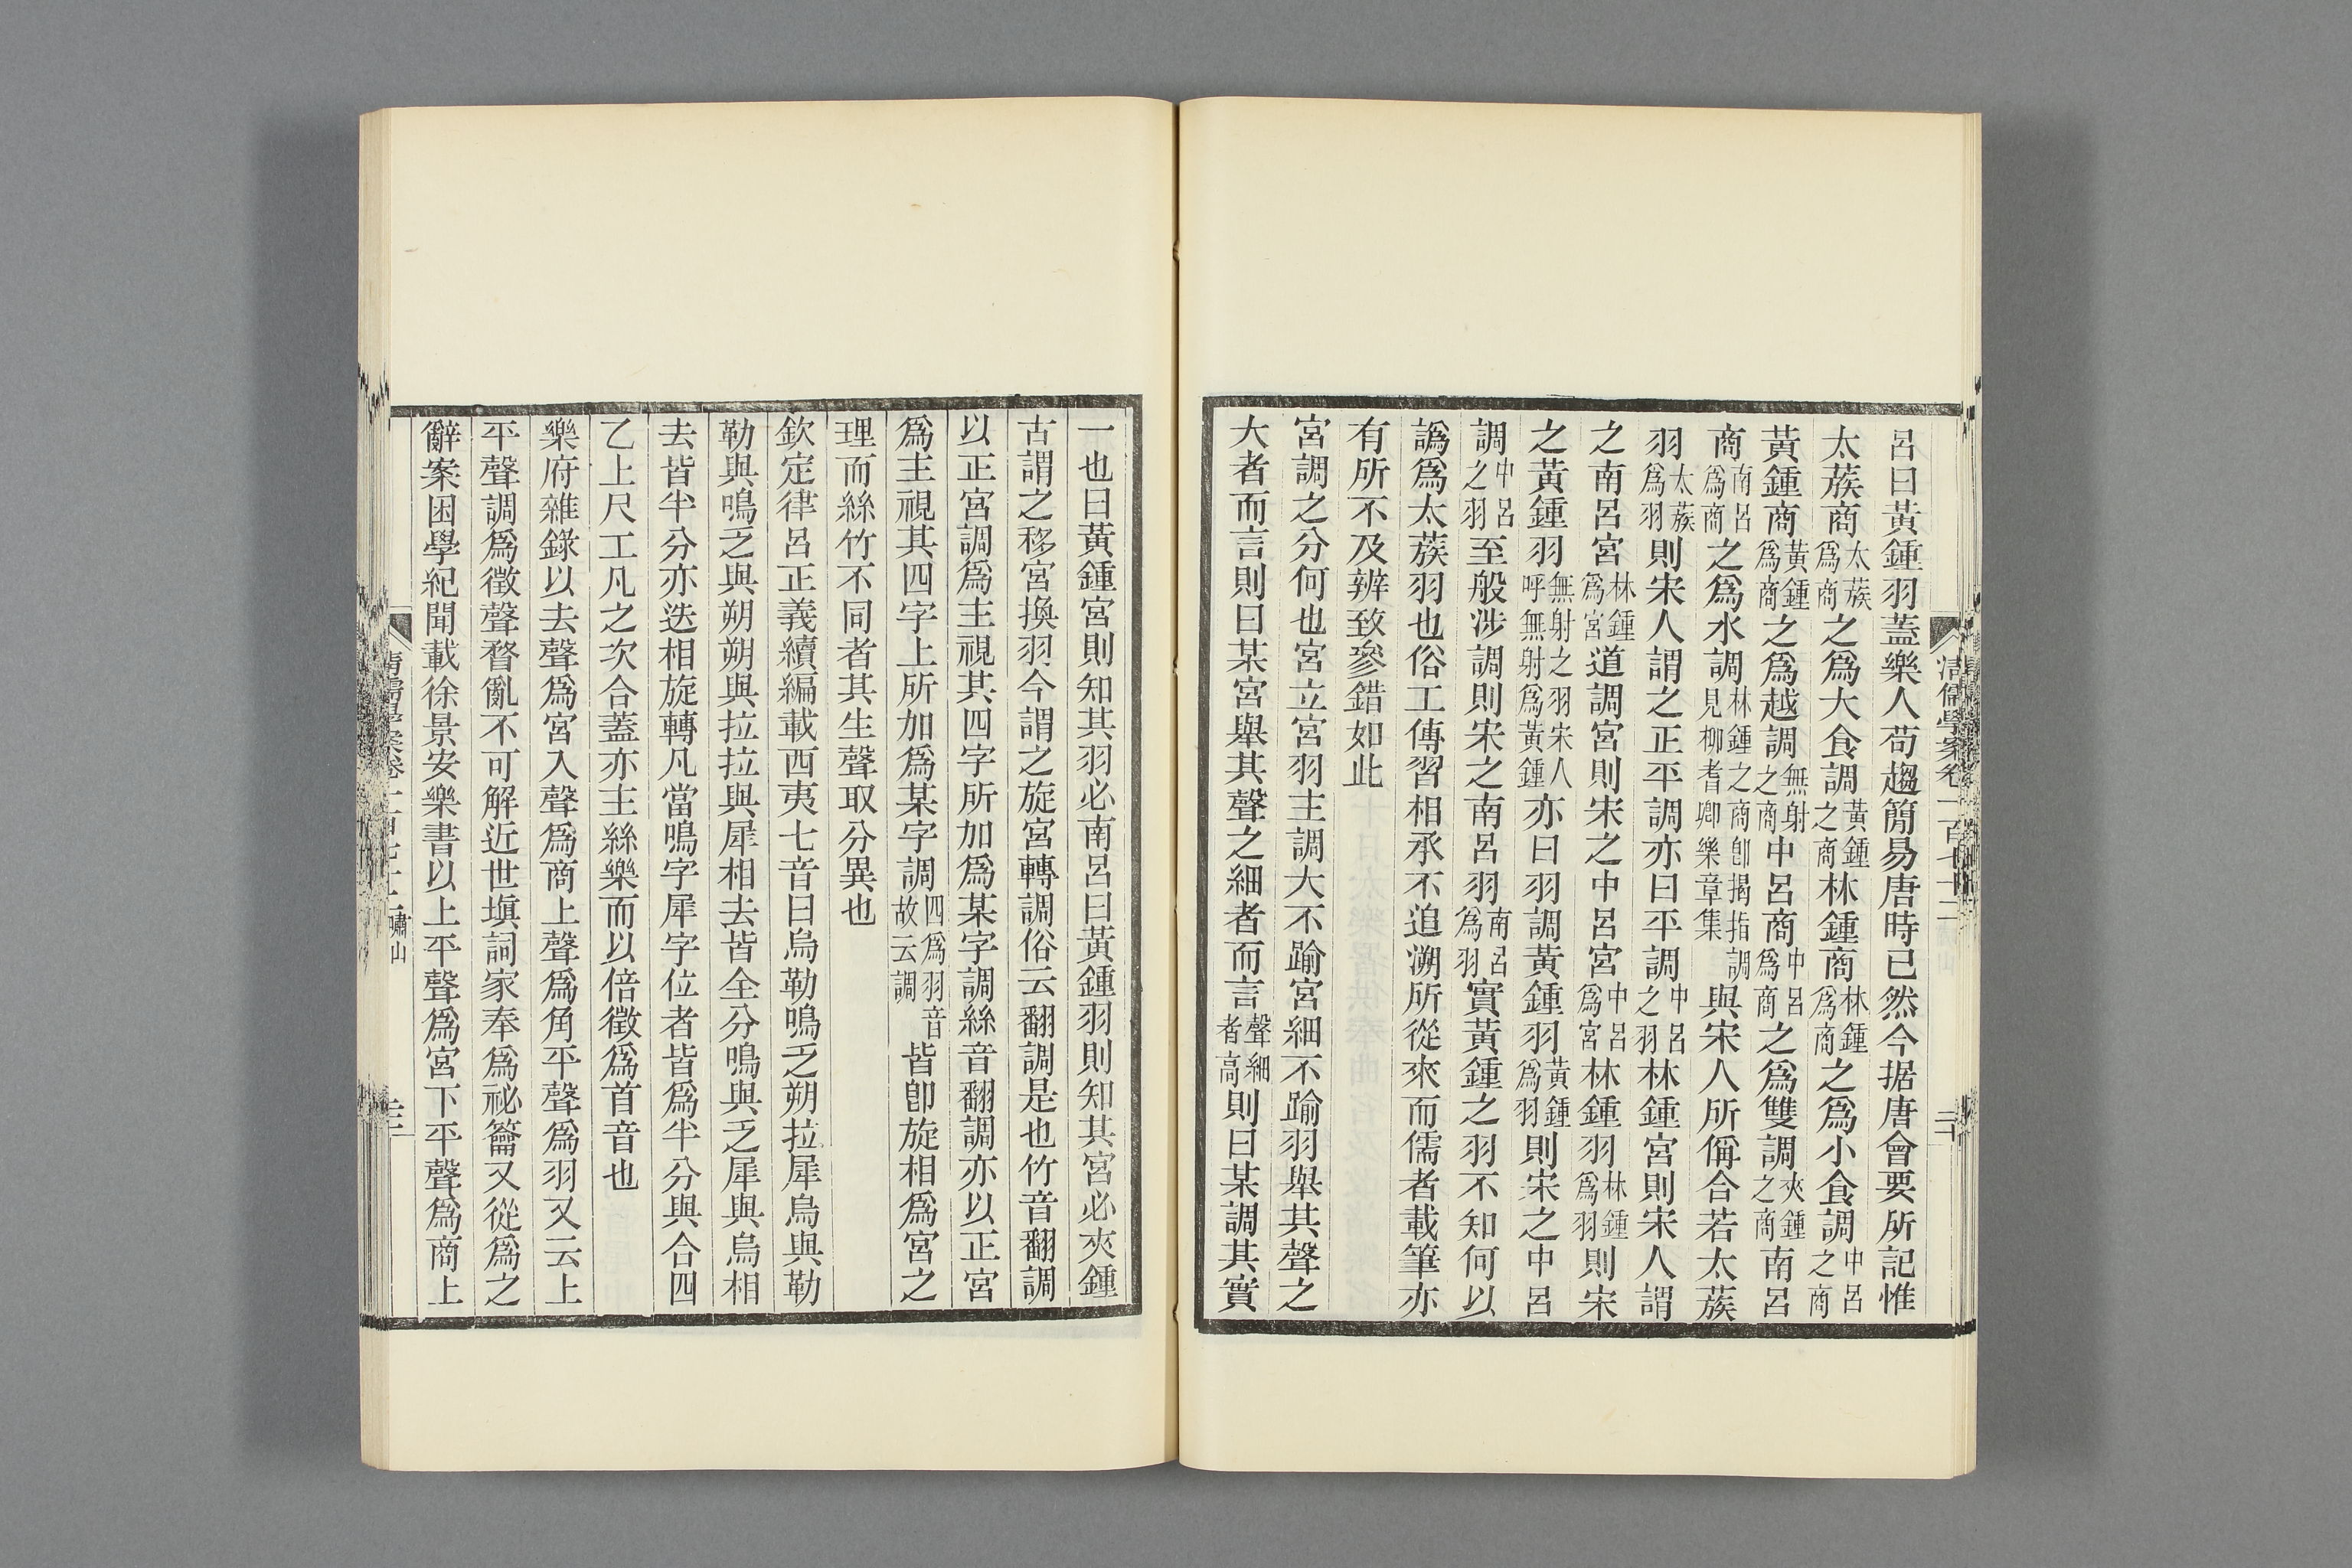 呂曰黃鍾羽蓋樂人苟趨簡易唐時已然今据唐會要所記惟
太蔟商太蔟爲商之爲大食調黃鍾之商林鍾商林鍾爲商之爲小食調中呂之商
黃鍾商黃鍾爲商之爲越調無射之商中呂商中呂爲商之爲雙調夾鍾之商南呂
商南呂爲商之爲水調林鍾之商卽揭指調見柳耆卿樂章集與宋人所偁合若太蔟
羽太蔟爲羽則宋人謂之正平調亦曰平調中呂之羽林鍾宮則宋人謂
之南呂宮林鍾爲宮道調宮則宋之中呂宮中呂爲宮林鍾羽林鍾爲羽則宋
之黃鍾羽無射之羽宋人呼無射爲黃鍾亦曰羽調黃鍾羽黃鍾爲羽則宋之中呂
調中呂之羽至般涉調則宋之南呂羽南呂爲羽實黃鍾之羽不知何以
譌爲太蔟羽也俗工傳習相承不追溯所從來而儒者載筆亦
有所不及辨致參錯如此
宮調之分何也宮立宮羽主調大不踰宮細不踰羽舉其聲之
大者而言則曰某宮舉其聲之細者而言聲細者高則曰某調其實
清儒學案卷一百七十二
三十
一也曰黃鍾宮則知其羽必南呂曰黃鍾羽則知其宮必夾鍾
古謂之移宮換羽今謂之旋宮轉調俗云翻調是也竹音翻調
以正宮調爲主視其四字所加爲某字調絲音翻調亦以正宮
爲主視其四字上所加爲某字調四爲羽音故云調皆卽旋相爲宮之
理而絲竹不同者其生聲取分異也
欽定律呂正義續編載西夷七音曰烏勒鳴乏朔拉犀烏與勒
勒與鳴乏與朔朔與拉拉與犀相去皆全分鳴與乏犀與烏相
去皆半分亦迭相旋轉凡當鳴字犀字位者皆爲半分與合四
乙上尺工凡之次合蓋亦主絲樂而以倍徵爲首音也
樂府雜錄以去聲爲宮入聲爲商上聲爲角平聲爲羽又云上
平聲調爲徵聲瞀亂不可解近世塡詞家奉爲祕籥又從爲之
辭案困學紀聞載徐景安樂書以上平聲爲宮下平聲爲商上
嘯山